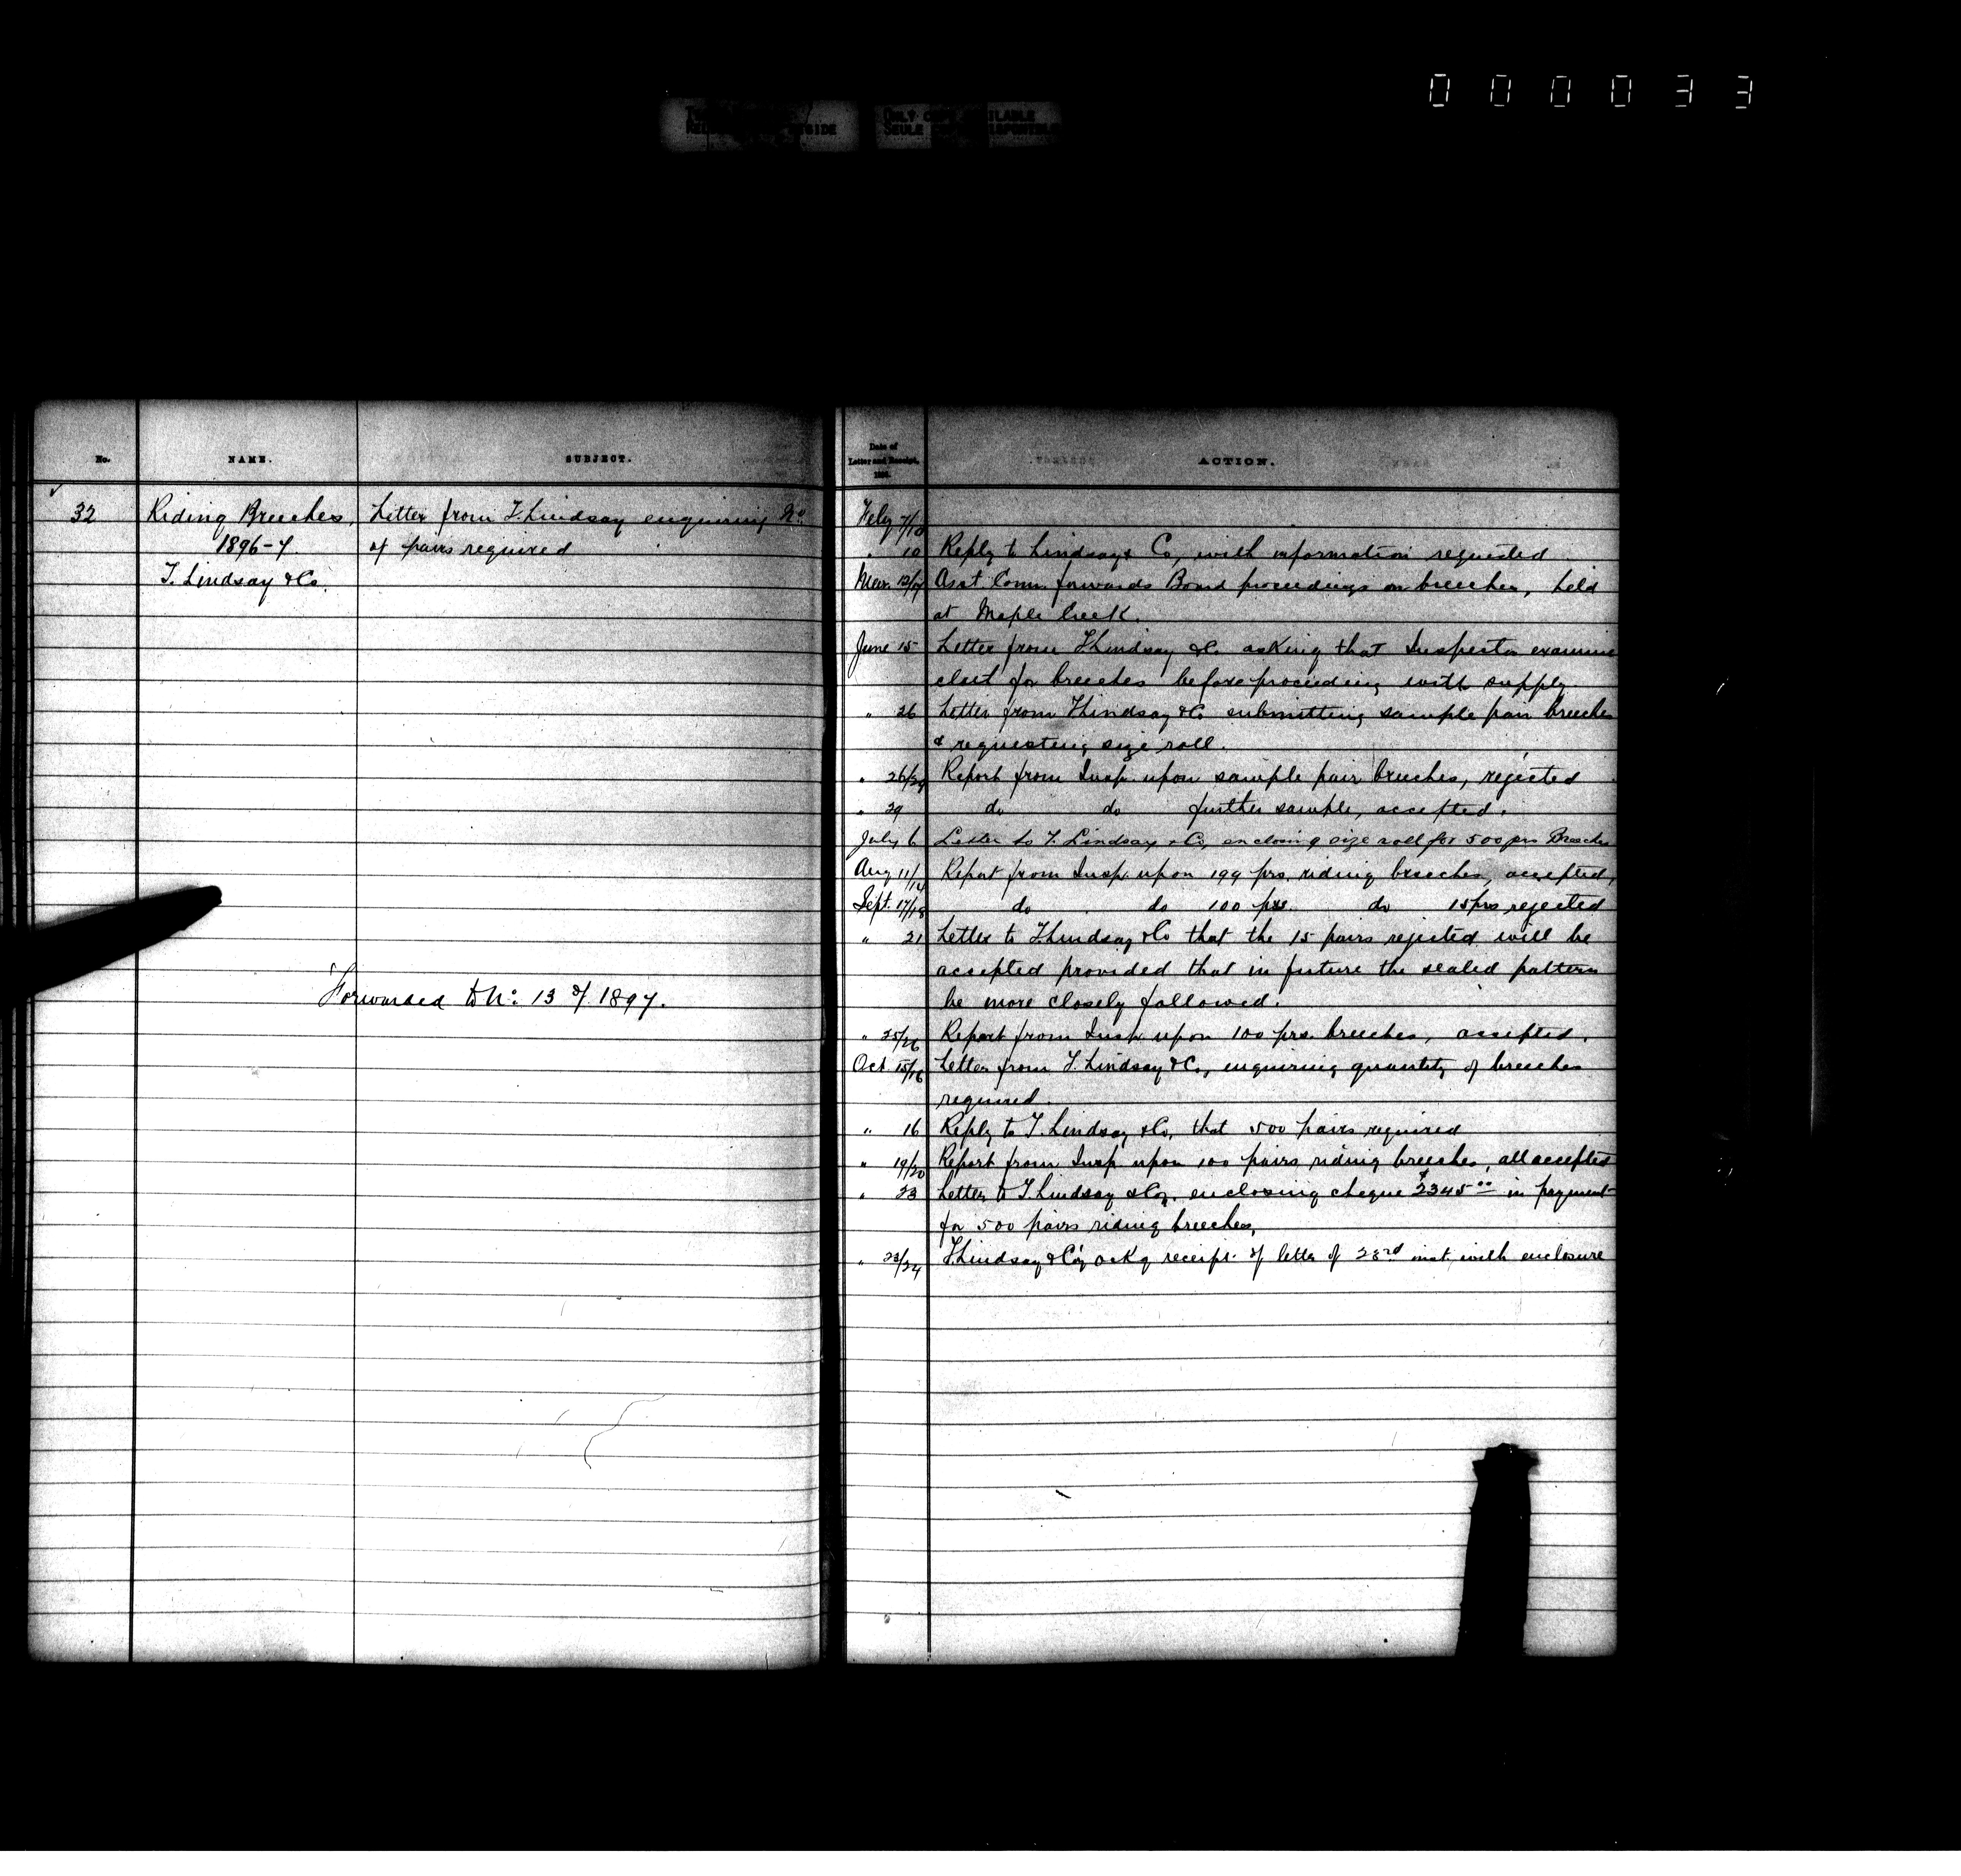 0 0 0 0 3 3
ONLY COPY AVAILABLE
SEULE
No.
NAME.
SUBJECT.
32
Riding Breeches,
1896-7
T. Lindsay & Co.
Letter from T. Lindsay enquiring No.
of pairs required
Forwarded to No: 13 of 1897.
Date of
Letter and Receipt,
1896.
ACTION.
Feby 7/10
" 10 Reply to Lindsay & Co, with information requested
Mar. 12/17 Asst Comr. forwards Board proceedings on breeches, held
at Maple Creek.
June 15 Letter from T. Lindsay & Co. asking that Inspector examine
before proceeding with supply
" 26 Letter from T. Lindsay & Co submitting sample pair breeches
& requesting size roll.
" 26/29 Report from Insp. upon sample pair breeches, rejected
" 29 do do further sample, accepted.
July 6 Letter to T. Lindsay & Co, enclosing size roll for 500 prs Breeches
Aug 11/14 Report from Insp. upon 199 prs. riding breeches, accepted,
Sept. 17/18 do do 100 prs. do 15 prs rejected
" 21 Letter to T. Lindsay & Co that the 15 pairs rejected will be
accepted provided that in future the sealed pattern
be more closely followed.
" 25/26 Report from Insp. upon 100 prs. breeches, accepted.
Oct 15/16 Letter from T. Lindsay & Co, enquiring quantity of breeches
required.
" 16 Reply to T. Lindsay & Co, that 500 pairs required
" 19/20 Report from Insp. upon 100 pairs riding breeches, all accepted
" 23 Letter to T. Lindsay & Coy. enclosing cheque $2345.00 in payment
for 500 pairs riding breeches,
" 23/24 T. Lindsay & Coy ackg receipt of letter of 23rd inst, with enclosure